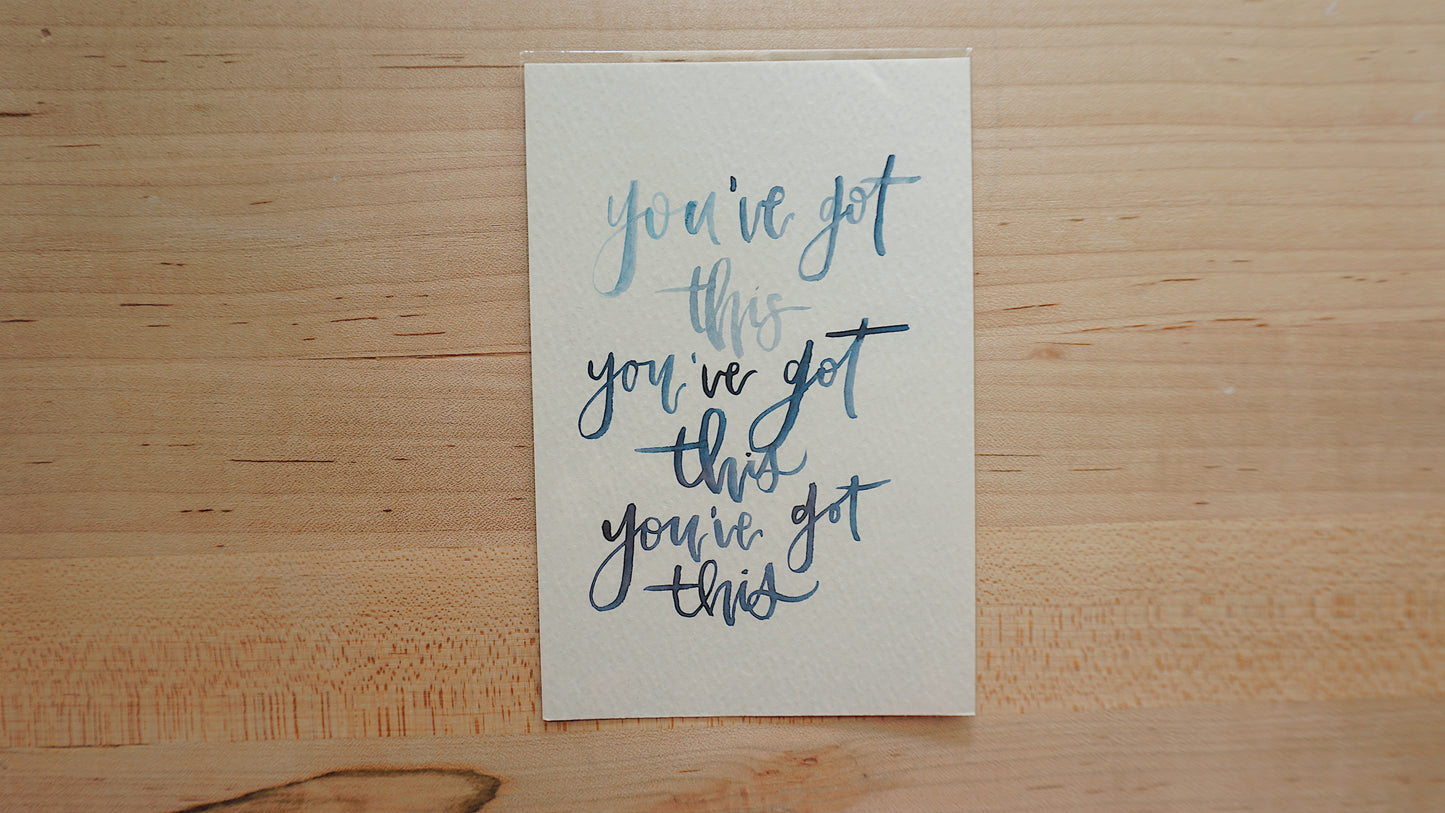 you've got
this
you've got
this
you've got
this